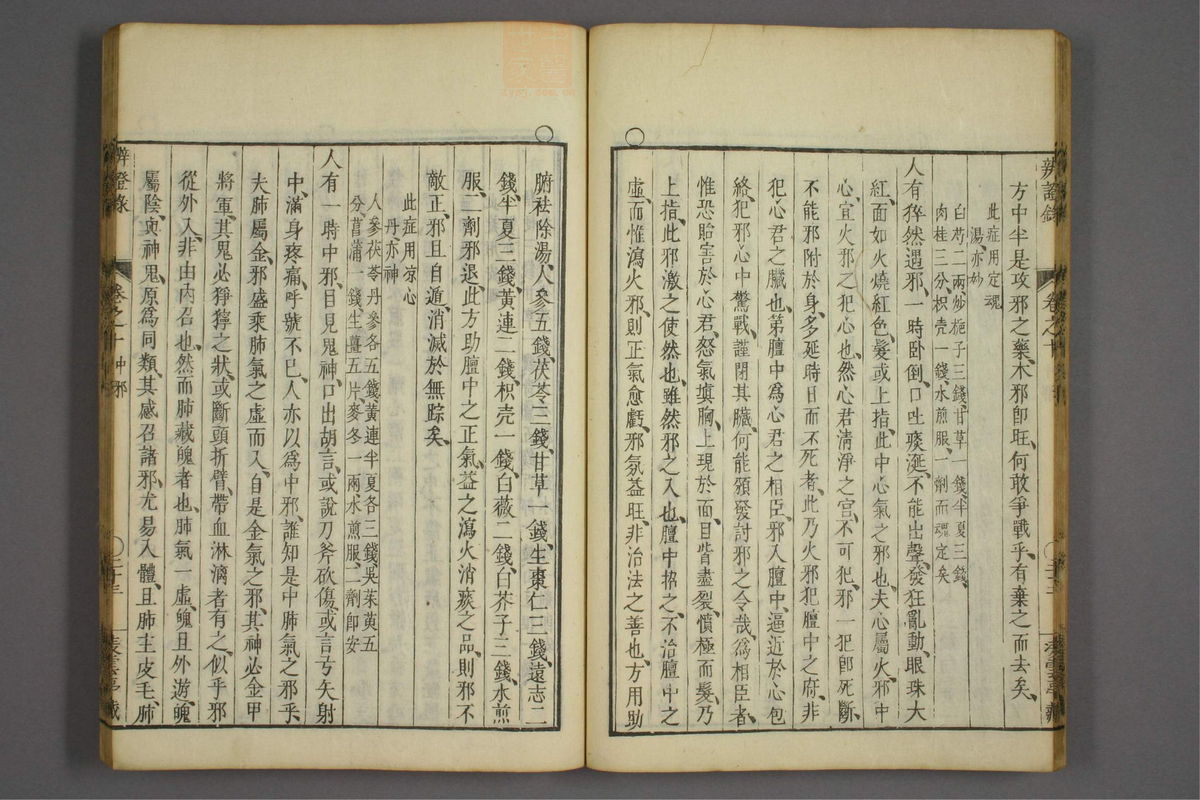 辨證錄 卷之十
方中半是攻邪之藥木邪卽旺何敢爭戰乎有棄之而去矣
此症用定魂
湯亦妙
白芍二兩炒梔子三錢甘草一錢半夏三錢
肉桂三分枳壳一錢水煎服一劑而魂定矣
人有猝然遇邪一時臥倒口吐痰涎不能出聲發狂亂動眼珠大
紅面如火燒紅色髮或上指此中心氣之邪也夫心屬火邪中
心宜火邪之犯心也然心君清淨之宮不可犯邪一犯卽死斷
不能邪附於身多延時日而不死者此乃火邪犯膻中之府非
犯心君之臟也第膻中爲心君之相臣邪入膻中逼近於心包
絡犯邪心中驚戰謹閉其臟何能頒發討邪之令哉爲相臣者
惟恐貽害於心君怒氣塡胸上現於面目眥盡裂憤極而髮乃
上指此邪激之使然也雖然邪之入也膻中招之不治膻中之
虛而惟瀉火邪則正氣愈虧邪氛益旺非治法之善也方用助
腑祛除湯人參五錢茯苓三錢甘草一錢生棗仁三錢遠志二
錢半夏三錢黃連二錢枳壳一錢白薇二錢白芥子三錢水煎
服二劑邪退此方助膻中之正氣益之瀉火消痰之品則邪不
敵正邪且自遁消滅於無踪矣
此症用凉心
丹亦神
人參茯苓丹參各五錢黃連半夏各三錢吳茱萸五
分菖蒲一錢生薑五片麥冬一兩水煎服二劑卽安
人有一時中邪目見鬼神口出胡言或說刀斧砍傷或言弓矢射
中滿身疼痛呼號不已人亦以爲中邪誰知是中肺氣之邪乎
夫肺屬金邪盛乘肺氣之虛而入自是金氣之邪其神必金甲
將軍其鬼必猙獰之狀或斷頭折臂帶血淋漓者有之似乎邪
從外入非由內召也然而肺藏魄者也肺氣一虛魄且外遊魄
屬陰與神鬼原爲同類其感召諸邪尤易入體且肺主皮毛肺
辨證錄 卷之十 中邪